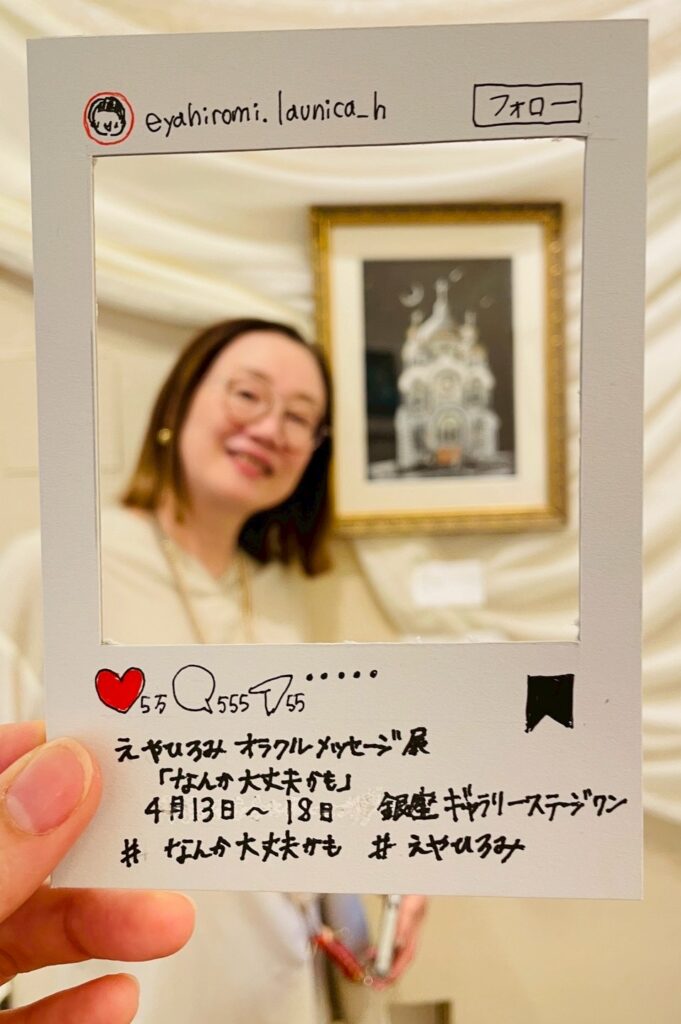 eyahiromi.launica_h フォロー
5万 555 55
えやひろみ オラクルメッセージ展
「なんか大丈夫かも」
4月13日〜18日 銀座ギャラリーステージワン
# なんか大丈夫かも # えやひろみ